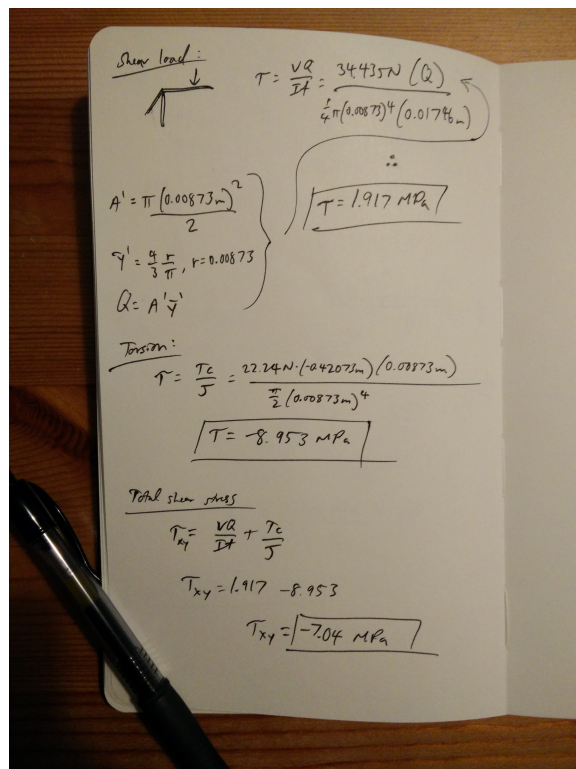 Shear load:
τ = VQ/It = 344.35N (Q) / ¼π(0.00873)⁴(0.01746m)
∴
τ = 1.917 MPa
A' = π(0.00873m)²/2
ȳ' = 4/3 r/π, r=0.00873
Q = A'ȳ'
Torsion:
τ = Tc/J = 22.24N·(-0.42073m)(0.00873m) / π/2 (0.00873m)⁴
τ = -8.953 MPa
Total shear stress
τxy = VQ/It + Tc/J
τxy = 1.917 -8.953
τxy = -7.04 MPa